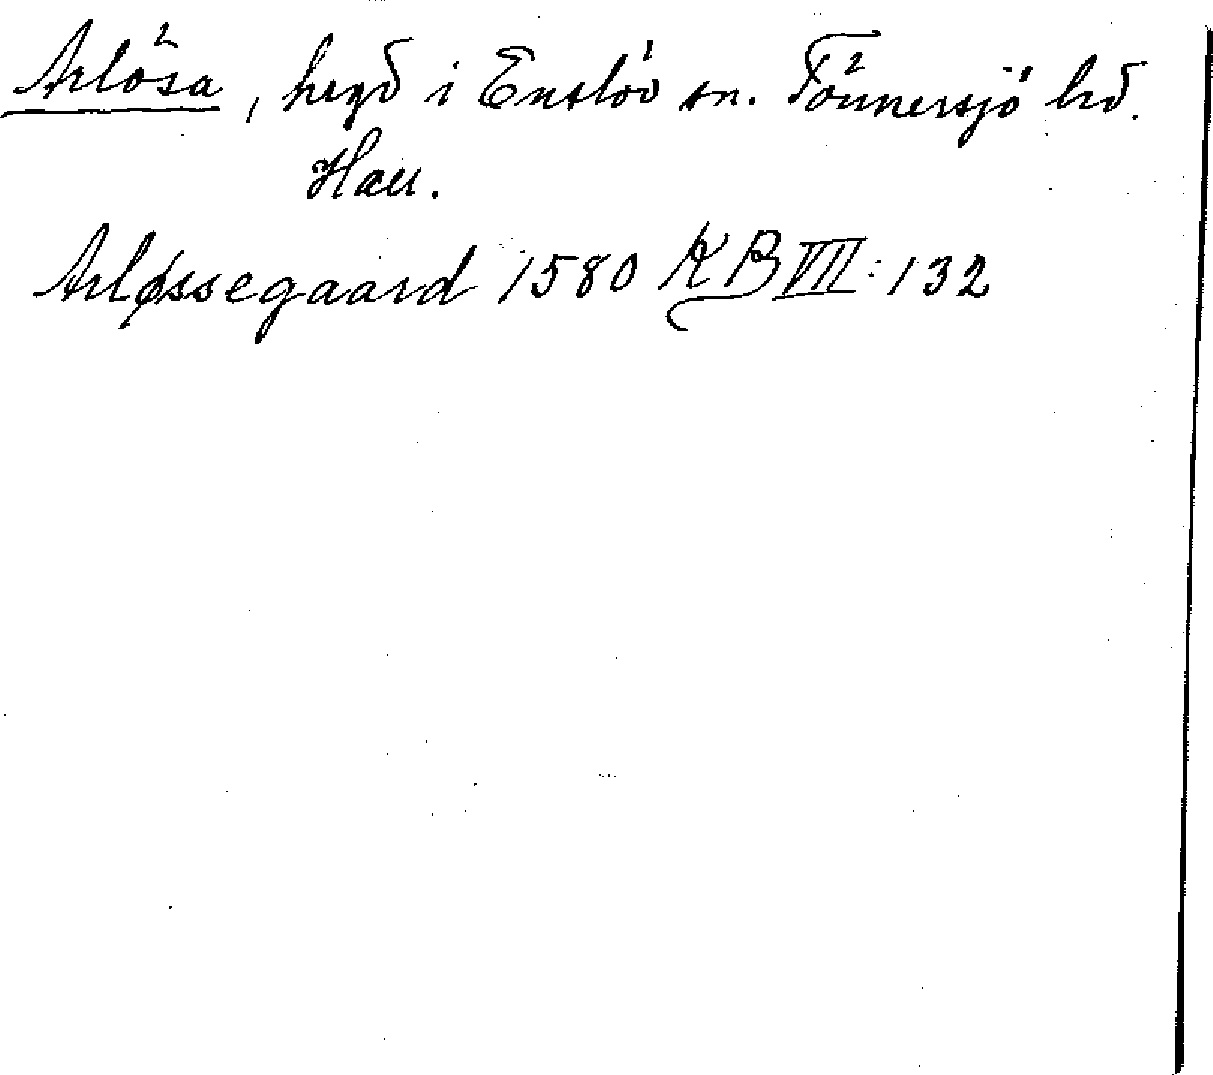 Arlösa, hegd i Enslöv sn. Tönnersjö hd.
Hall.
Arløssegaard 1580 KB VII: 132